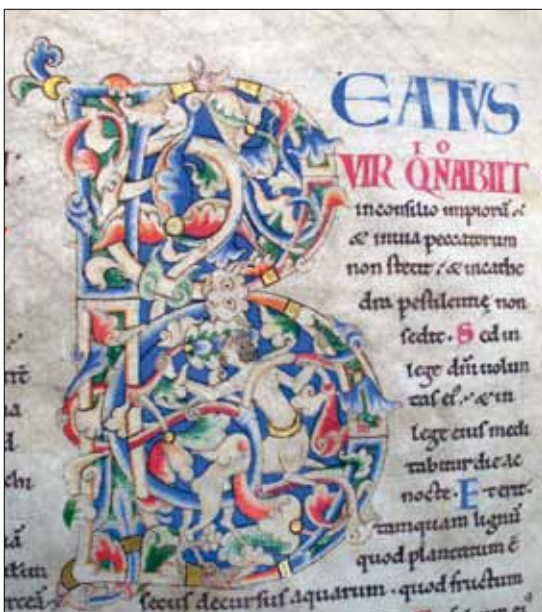 B
EATUS
IO
VIR QNABIIT
in consilio impiorū &
& in uia peccatorum
non stetit / & in cathe
dra pestilentię non
sedit. Sed in
lege dn̄i uolun
tas ei᾽. & in
lege eius medi
tabitur die ac
nocte. Et erit
tamquam lignū
quod plantatum ē
secus decursus aquarum. quod fructum